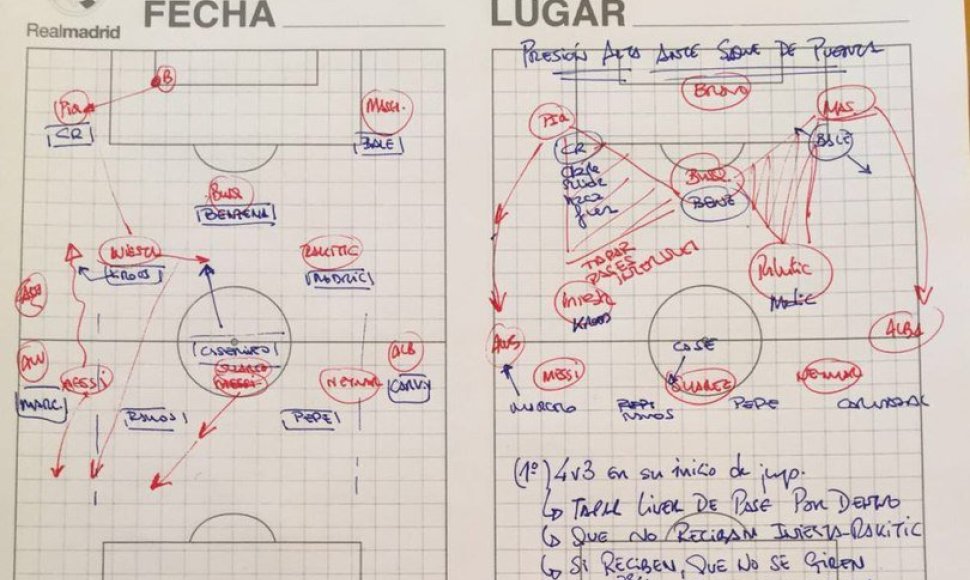 FECHA
Realmadrid
B
Piq
CR
MASH.
BALE
BUSQ
BENZEMA
INIESTA
KROOS
RAKITIC
MODRIC
CASEMIRO
SUAREZ
MESSI
MESSI
NEYMAR
ALB
MARC
CARV
RAMOS
PEPE
LUGAR
PRESIÓN ALTA ANTE SAQUE DE PUERTA
BRAVO
PIQ
MAS
CR
BALE
BUSQ
BENZ
TAPAR
PASES
INTERIORES
INIESTA
KROOS
Rakitic
Modric
ALVES
ALBA
CASE
MESSI
SUAREZ
NEYMAR
MARCELO
PEPE
RAMOS
PEPE
CARVAJAL
(1º) 4v3 en su inicio de juego.
↳ TAPAR LINEA DE PASE POR DENTRO
↳ QUE NO RECIBAN INIESTA-RAKITIC
↳ SI RECIBEN, QUE NO SE GIREN